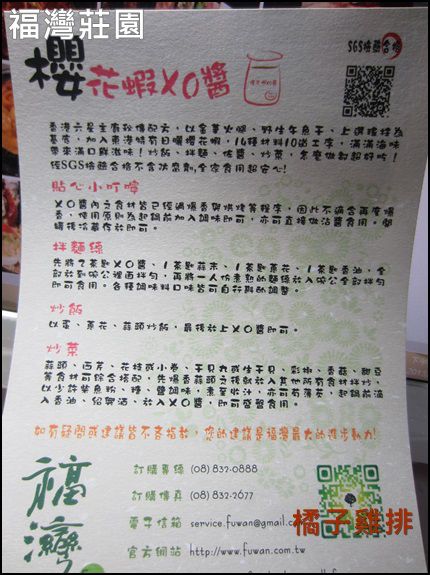 福灣莊園
SGS檢驗合格
櫻花蝦XO醬
香港六星主廚秘傳配方，以金華火腿、野生午魚干、上選瑤柱為
基底，加入東港特有日曬櫻花蝦，16種材料10出工序，滿滿海味
帶來滿口鮮滋味！炒飯、拌麵、佐醬、炒菜，怎麼做都超好吃！
經SGS檢驗合格不含防腐劑，全家食用超安心！
貼心小叮嚀
XO醬內之食材皆已經過爆香與烘烤等程序，因此不適合再度爆
香，使用原則為起鍋前加入調味即可，亦可直接做沾醬食用。開
罐後冷藏存放即可。
拌麵線
先將2茶匙XO醬、1茶匙蒜末、1茶匙蔥花、1茶匙香油，全
部放到碗公裡面拌勻，再將一人份煮熟的麵線放入碗公全部拌勻
即可食用。各種調味料口味皆可自行斟酌調整。
炒飯
以蛋、蔥花、蒜頭炒飯，最後拌上XO醬即可。
炒菜
蒜頭、西芹、花枝或小卷、干貝丸或生干貝、彩椒、香菇、甜豆
等食材可綜合搭配，先爆香蒜頭之後就放入其他所有食材拌炒，
以少許紫魚粉、糖、鹽調味，煮至收汁，亦可勾薄芡，起鍋前淋
入香油、紹興酒，放入XO醬，即可盛盤食用。
如有疑問或建議皆不吝指教，您的建議是福灣最大的進步動力！
福灣
訂購專線 (08) 832-0888
訂購傳真 (08) 832-2677
電子信箱 service.fuwan@gmail.c
官方網站 http://www.fuwan.com.tw
橘子雞排